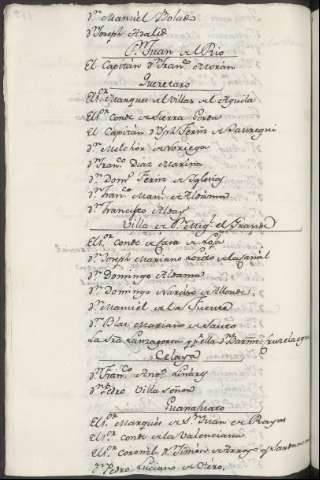 Dn Manuel
Dn Joseph
Sn Juan del Rio
El Capitán Dn Franco
Queretaro
El Sr Marques del Villar del Aguila
El Sr conde de Sierra Gorda
El Capitán Dn Jph Ferin de
Dn Melchor de Noriega
Dn Franco Diaz Marina
Dn Domo de Iglesias
Dn Franco Manl de Aldama
Dn Francisco Alday
Villa de Sn Migl el Grande
El Sr conde de Casa de Loja
Dn Joseph Mariano Loreto de la Canal
Dn Domingo Aldama
Dn Domingo Narciso de Allende
Dn Manuel de la Fuente
Dn Blas Mariano de Sauto
La Sra Lanzagorta pr ella Dn
Celaya
Dn Franco Linares
Dn Pedro Villaseñor
Guanajuato
El Sr Marques de Sn Juan de Rayas
El Sr conde de la Valenciana
El Sr coronel Dn de Arroyo
Dn Pedro Luciano de Otero